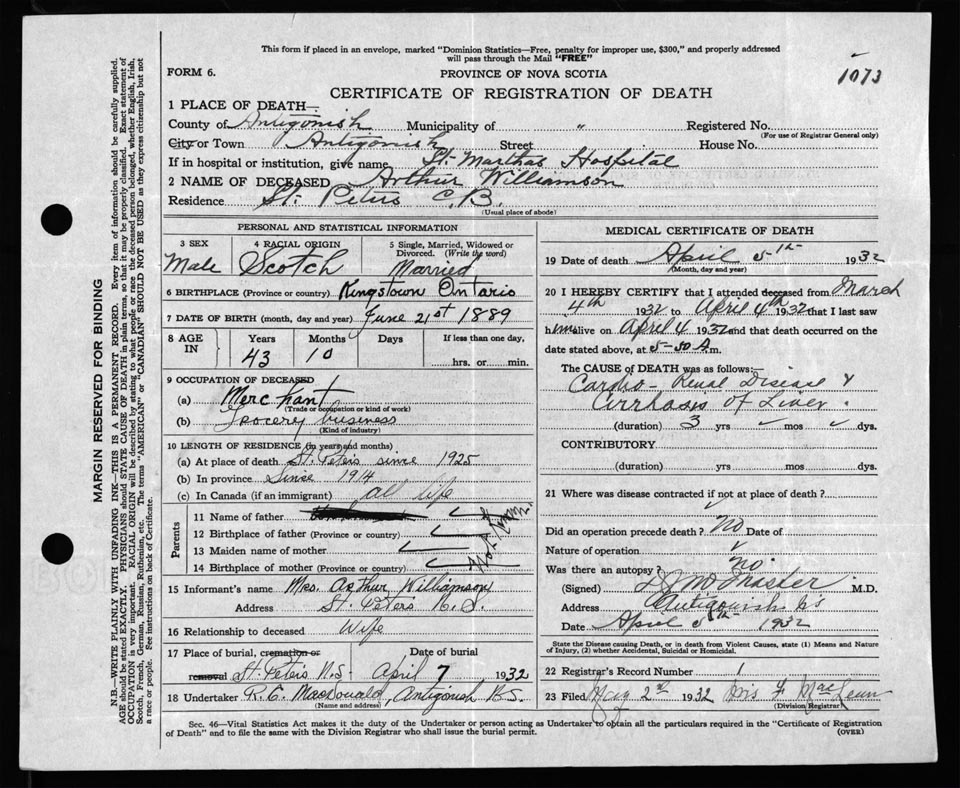 This form if placed in an envelope, marked "Dominion Statistics—Free, penalty for improper use, $300," and properly addressed
will pass through the Mail "FREE"
FORM 6.
PROVINCE OF NOVA SCOTIA
1073
CERTIFICATE OF REGISTRATION OF DEATH
1 PLACE OF DEATH—
County of Antigonish Municipality of " Registered No.
(For use of Registrar General only)
City or Town Antigonish Street House No.
If in hospital or institution, give name St. Marthas Hospital
2 NAME OF DECEASED Arthur Williamson
Residence St. Peters C.B.
(Usual place of abode)
PERSONAL AND STATISTICAL INFORMATION
3 SEX 4 RACIAL ORIGIN 5 Single, Married, Widowed or
Divorced. (Write the word)
Male Scotch Married
6 BIRTHPLACE (Province or country) Kingstown Ontario
7 DATE OF BIRTH (month, day and year) June 21st 1889
8 AGE IN Years Months Days If less than one day,
43 10 hrs. or min.
9 OCCUPATION OF DECEASED
(a) Merchant
(Trade or occupation or kind of work)
(b) Grocery business
(Kind of industry)
10 LENGTH OF RESIDENCE (in years and months)
(a) At place of death St. Peters since 1925
(b) In province Since 1914
(c) In Canada (if an immigrant) all life
Parents
11 Name of father
12 Birthplace of father (Province or country)
13 Maiden name of mother
14 Birthplace of mother (Province or country)
Not Known
15 Informant's name Mrs. Arthur Williamson
Address St. Peters N.S.
16 Relationship to deceased Wife
17 Place of burial, cremation or Date of burial
removal St. Peters N.S. April 7 1932
18 Undertaker R.C. MacDonald, Antigonish N.S.
(Name and address)
MEDICAL CERTIFICATE OF DEATH
19 Date of death April 5th 1932
(Month, day and year)
20 I HEREBY CERTIFY that I attended deceased from March
4th 1932 to April 4th 1932 that I last saw
him alive on April 4 1932 and that death occurred on the
date stated above, at 5-50 A.m.
The CAUSE OF DEATH was as follows:—
Cardio-Renal Disease &
Cirrhosis of Liver.
(duration) 3 yrs mos dys.
CONTRIBUTORY
(duration) yrs mos. dys.
21 Where was disease contracted if not at place of death?
Did an operation precede death? No Date of
Nature of operation
Was there an autopsy? no.
(Signed) M.D.
Address Antigonish N.S.
Date April 5th 1932
State the Disease causing Death, or in Death from Violent Causes, state (1) Means and Nature
of Injury, (2) whether Accidental, Suicidal or Homicidal.
22 Registrar's Record Number 1
23 Filed May 2nd 1932
(Division Registrar)
Sec. 46—Vital Statistics Act makes it the duty of the Undertaker or person acting as Undertaker to obtain all the particulars required in the "Certificate of Registration
of Death" and to file the same with the Division Registrar who shall issue the burial permit.
(OVER)
MARGIN RESERVED FOR BINDING
N.B.—WRITE PLAINLY WITH UNFADING INK—THIS IS A PERMANENT RECORD. Every item of information should be carefully supplied.
AGE should be stated EXACTLY. PHYSICIANS should STATE CAUSE OF DEATH in plain terms, so that it may be properly classified. Exact statement of
OCCUPATION is very important. RACIAL ORIGIN will be described by stating to what people or race the deceased person belonged, whether English, Irish,
Scotch, French, German, Russian, Ruthenian, etc. The terms "AMERICAN" or "CANADIAN" SHOULD NOT BE USED as they express citizenship but not
a race or people. See instructions on back of Certificate.